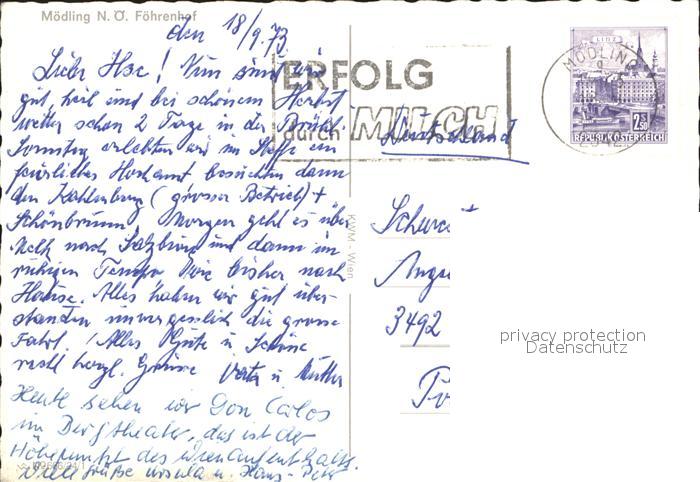 Mödling N. Ö. Föhrenhof
den 18/9.73
Liebe Ilse! Nun sind wir
gut, heil und bei schönem Herbst
wetter schon 2 Tage in der Brühl.
Sonntag erlebten wir im Steffe ein
feierliches Hochamt besuchten dann
den Kahlenberg (grosser Betrieb) +
Schönbrunn. Morgen geht es über
Melk nach Salzburg und dann im
ruhigen Tempo wie bisher nach
Hause. Alles haben wir gut über-
standen unvergesslich die grosse
Fahrt. Alles Gute u. Schöne
recht herzl. Grüsse Vati u. Mutti
Heute sehen wir Don Carlos
im Burgtheater, das ist der
Höhepunkt des Wienaufenthalts.
Viele Grüße Ursula u. Hans-Peter
KWM - Wien
ERFOLG
durch MILCH
MÖDLING
LINZ
2.50
REPUBLIK ÖSTERREICH
Deutschland
3492
privacy protection
Datenschutz